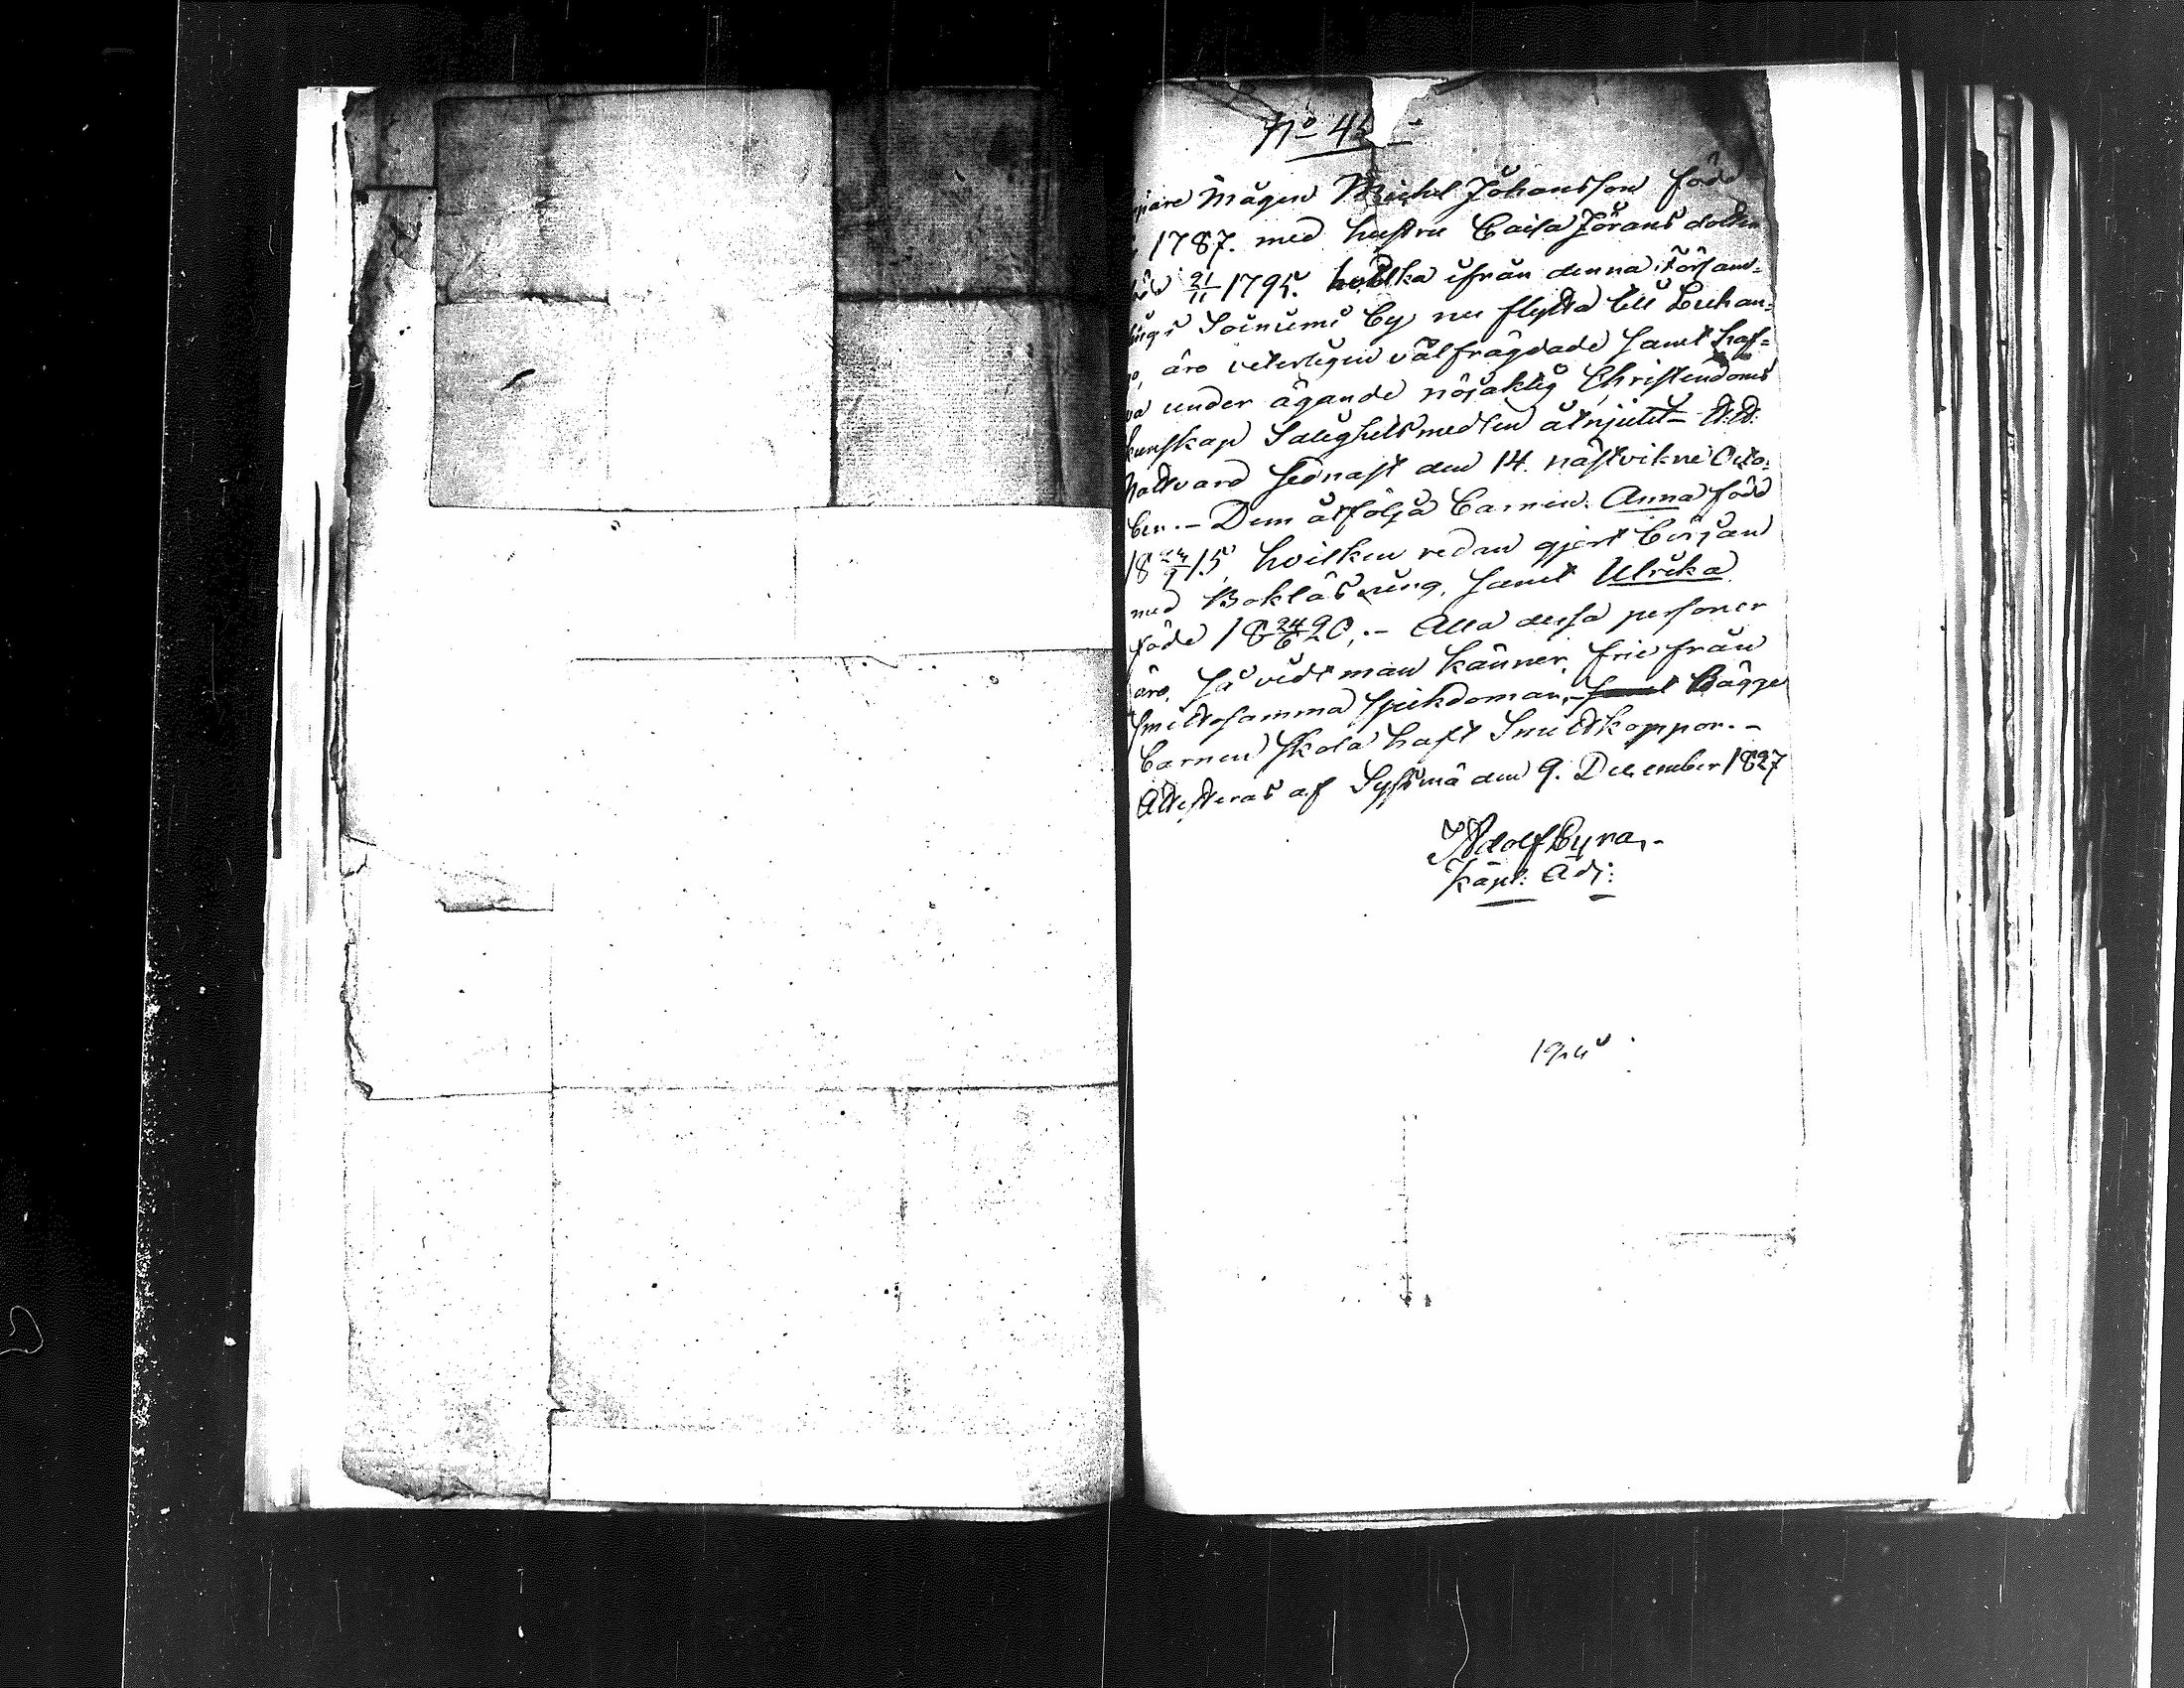 No 45
Mågen Michel Johansson född
1787. med hustru Caisa Jörans dotter
född 21/11 1795. hvilka ifrån denna Församl=
lings Soiniemi By nu flytta till Leihan=
äro veterligen välfrägdade samt haf=
va under ägande nöjaktig Christendoms
kunskap Salighetsmedlen åtnjutit H. H.
Nattvard sednast den 14. nästvikne Octo=
ber. – Dem åtfölja Barnen. Anna född
18 23/9 15, hvilken redan gjort början
med Bokläsning, samt Ulrika
föde 18 24/6 20,. – Alla dessa personer
äro, så vidt man känner, frie från
smittosamma sjukdomar, – samt Bägge
Barnen skola haft Smittkoppor. –
Attesteras af Sysmä den 9. December 1827
Adolf Cyra,.
Kapl: Adj: